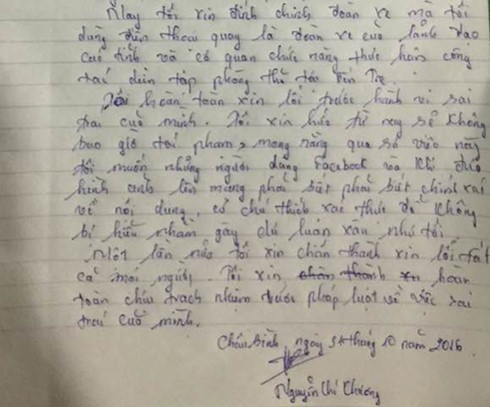 Nay tôi xin đính chính đoàn xe mà tôi
dùng điện thoại quay là đoàn xe của lãnh đạo
của tỉnh và cơ quan chức năng thực hiện công
tác diễn tập phòng thủ tại Bến Tre.
Tôi hoàn toàn xin lỗi trước hành vi sai
trái của mình. Tôi xin hứa từ nay sẽ không
bao giờ tái phạm, mong rằng qua sự việc này
tôi muốn những người dùng Facebook và khi đưa
hình ảnh lên mạng phải biết phải biết chính xác
về nội dung, có chú thích xác thực để không
bị hiểu nhầm gây dư luận xấu như tôi
Một lần nữa tôi xin chân thành xin lỗi tất
cả mọi người. Tôi xin chân thành xin hoàn
toàn chịu trách nhiệm trước pháp luật về việc sai
trái của mình.
Châu Bình, ngày tháng 10 năm 2016
Nguyễn Chí